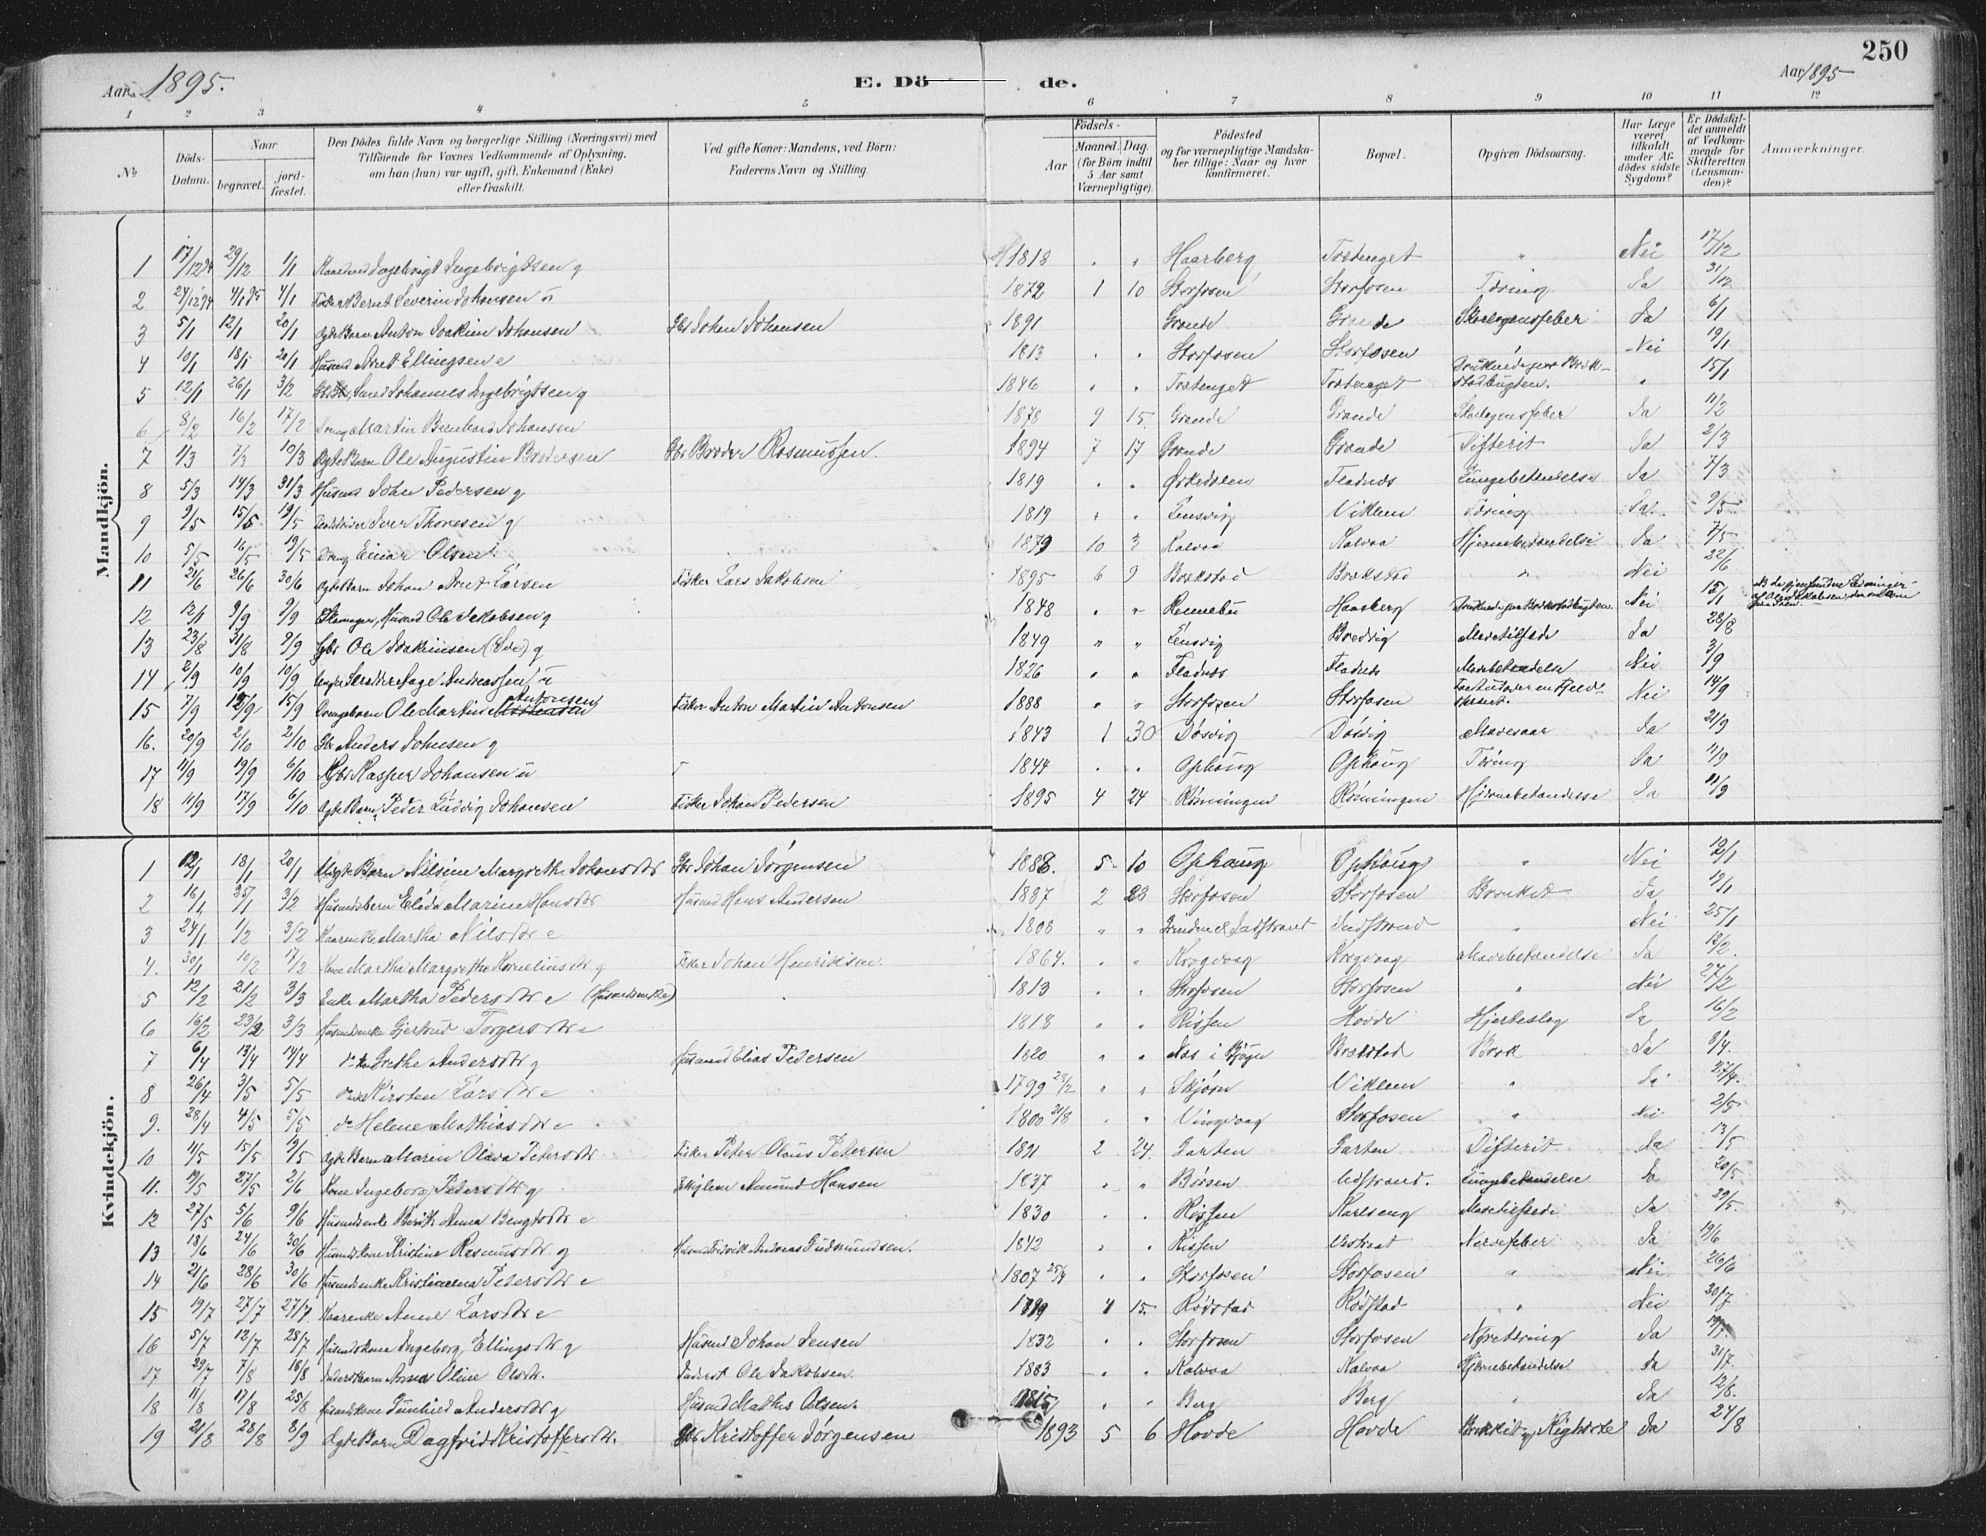 250
Aar 1895. E. Dö de. Aar 1895
1 2 3 4 5 6 7 8 9 10 11 12
No
Döds-Datum.
Naar begravet. jordfæstet.
Den Dödes fulde Navn og borgerlige Stilling (Næringsvei) med Tilföiende for Voxnes Vedkommende af Oplysning, om han (hun) var ugift, gift, Enkemand (Enke) eller fraskilt.
Ved gifte Koner: Mandens, ved Börn: Faderens Navn og Stilling.
Födsels- Aar Maaned. Dag. (for Börn indtil 5 Aar samt Værnepligtige).
Födested og for værnepligtige Mandskaber tillige: Naar og hvor konfirmeret.
Bopæl.
Opgiven Dödsaarsag.
Har Læge været tilkaldt under Afdödes sidste Sygdom?
Er Dödsfaldet anmeldt af Vedkommende for Skifteretten (Lensmanden)?
Anmærkninger.
Mandkjön.
1 17/12 94 29/12 1/1 Ingebrigt Ingebrigtsen g 1818 " " Haarberg Tostenget " Nei 17/12
2 24/12 94 4/1 95 4/1 Fisker Bernt Severin Johansen u 1872 1 10 Storfosen Storfosen Tæring Ja 31/12
3 5/1 12/1 20/1 Ægte Barn Anton Joakim Johansen Gbr Johan Johansen 1891 Grande Grande Skarlagensfeber Ja 6/1
4 10/1 18/1 20/1 Husmd Arnt Ellingsen e 1813 " " Storfosen Storfosen Nei 19/1
5 12/1 26/1 3/2 Johannes Ingebrigtsen g 1846 " " Tostenget Tostenget Druknede paa Bækstadbugten. " 15/1
6 8/2 16/2 17/2 Dreng Martin Bernhard Johansen 1878 9 15 Grande Grande Skarlagensfeber Ja 11/2
7 1/3 7/3 10/3 Ægte Barn Ole Augustin Brodersen Gbr Broder Rasmussen. 1894 7 17 Grande Grande Difterit Ja 2/3
8 5/3 14/3 31/3 Husmd Johan Pedersen g 1819 " " Ørkedalen Fladnes Lungebetendelse Ja 7/3
9 9/5 15/5 19/5 Iver Thoresen g 1819 " " Lensvig Viklem Tæring Ja. 9/5
10 5/5 16/5 19/5 Dreng Einar Olsen 1879 10 3 Kalvaa Kalvaa Hjernebetændelse Ja 7/5
11 21/6 26/6 30/6 Ægte Barn Johan Arnt Larsen Fisker Lars Jakobsen 1895 6 9 Bækstad Bækstad " Nei 22/6
12 12/1 9/9 9/9 Husmd Ole Jakobsen g 1848 " " Rennebu Haarberg Druknede paa Bækstadbugten. Nei 15/1
13 23/8 31/8 9/9 Gbr Ole Joakimsen (Lve) g 1849 " " Lensvig Bredvig Mavetilfælde Ja 28/8
14 2/9 10/9 10/9 Andreassen u 1826 " " Fladnes Fladnes Mavebetendelse Nei 3/9
15 7/9 15/9 15/9 Drengebarn Ole Martin Antonsen Fisker Anton Martin Antonsen 1888 " " Storfosen Storfosen Nei 14/9
16. 20/9 2/10 2/10 Gbr Anders Johnsen g 1843 1 30 Døsvig Døsvig Mavesaar Ja 21/9
17 11/9 19/9 6/10 Kasper Johansen u 1844 " " Ophaug Ophaug Tæring Ja 11/9
18 11/9 17/9 6/10 Ægte Barn Peder Ludvig Johansen Fisker Johan Pedersen 1895 4 24 Rønningen Rønningen Hjernebetændelse Ja 11/9
Kvindekjön.
1 12/1 18/1 20/1 Uægte Barn Nilsine Margrethe Johansdtr Gbr Johan Jørgensen 1888. 5 10 Ophaug Ophaug " Nei 12/1
2 16/1 25/1 3/2 Husmdsbarn Elida Marine Hansdtr Husmd Hans Andersen 1887 2 28 Storfosen Storfosen Bronkit Ja 19/1
3 24/1 1/2 3/2 Kaarenke Martha Nilsdtr e 1808 " " Indstrand Nei 25/1
4. 30/1 10/2 17/2 Kone Martha Margrethe Kornelius dtr g Fisker Johan Henriksen 1864. " " Krogvaag Krogvaag Mavebetændelse Ja 12/2.
5 12/2 21/2 3/3 Enke Martha Pedersdtr e (Husmdsenke) 1813 " " Storfosen Storfosen " Nei 27/2
6 16/2 23/2 3/3 Husmdsenke Gjertrud Torgersdtr e 1818 " " Rissen Hovde Hjerteslag Ja 16/2
7 6/4 13/4 14/4 Grethe Andersdtr g Husmand Elias Pedersen 1820 " " Næs i Bjugn Bækstad Brok Ja 8/4.
8 26/4 3/5 5/5 Kirsten Larsdtr e 1799 28/2 " " Skjørn Viklem " Ja 27/4.
9. 28/4 4/5 5/5 do Helene Mathiasdtr e 1800 21/8 " " Vingvaag Storfosen " Nei 2/5
10 11/5 15/5 19/5 Ægte Barn Maren Olava Petersdtr Fisker Peter Olaus Petersen 1891 2 24. Garten Garten Difterit Ja 13/5
11. 19/5 27/5 2/6 Kone Ingeborg Pedersdtr g Amund Hansen 1837 " " Børsen Udstrand. Lungebetændelse Ja 20/5
12 27/5 5/6 9/6 Husmdsenke Berit Anna Bengtsdtr e 1830 " " Rissen Karlseng Mavetilfælde Ja 29/5.
13 18/6 24/6 30/6 Husmdskone Kristine Rasmusdtr g Andreas Gudmundsen. 1842 " " Rissen Østraat Nervefeber Ja 19/6
14 21/6 28/6 30/6 Husmdsenke Kristianna Petersdtr e 1807 25/4 " " Storfosen Storfosen " Nei 26/6
15 19/7 27/7 27/7 Kaarenke Anne Larsdtr e 4 15. Rødstad Rødstad " Nei 20/7
16 5/7 12/7 28/7 Husmdskone Ingeborg Ellingsdtr g Husmd Johan Jensen 1832 " Storfosen Storfosen Nyretæring Ja
17 29/7 7/8 18/8 Anna Oline Olsdtr. Inderst Ole Jakobsen 1883 " " Kalvaa Kalvaa Hjernebetændelse Ja 31/7
18 11/8 17/8 25/8 Husmdskone Gunhild Andersdtr g Husmd Mathis Olsen. 1815 " " Berg Berg " Ja 12/8.
19 21/8 28/8 8/9 Ægte Barn Dagfrid Kristoffersdtr. Gbr Kristoffer Jørgensen 1893 5 6 Hovde Hovde Bronkit og Kighoste Ja 24/8